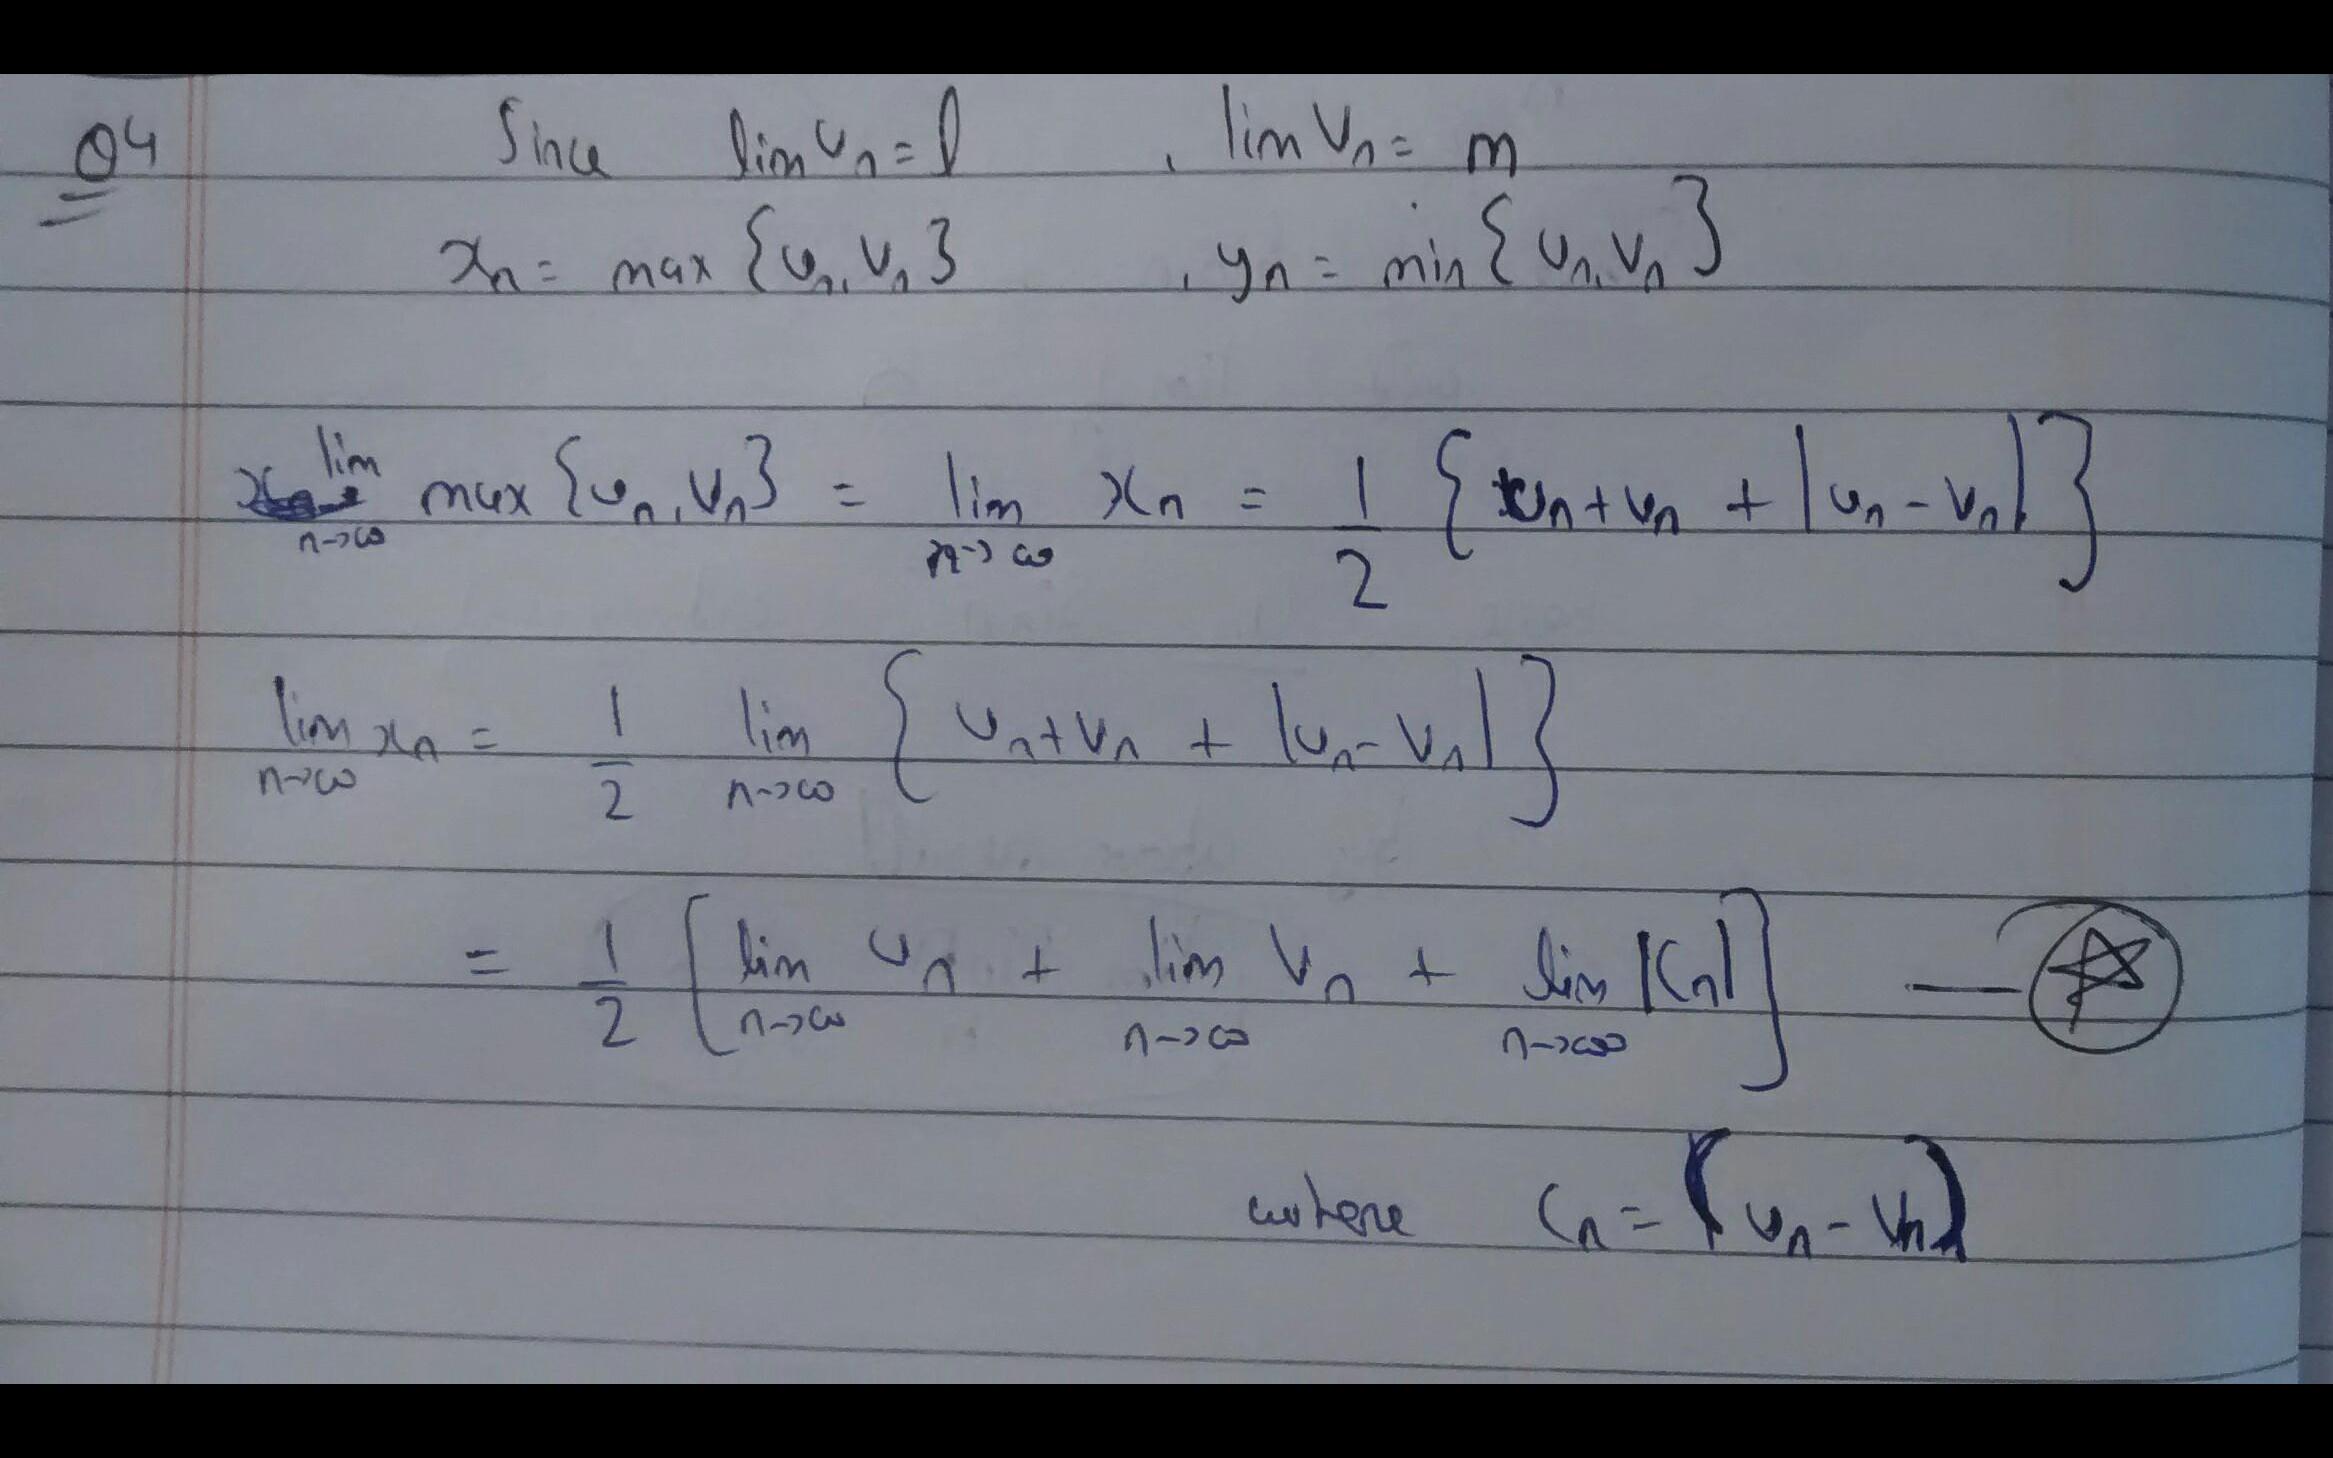 Q4 Since lim uₙ = l , lim vₙ = m
xₙ = max {uₙ, vₙ} , yₙ = min {uₙ, vₙ}
lim n→∞ max {uₙ, vₙ} = lim n→∞ xₙ = 1/2 {uₙ + vₙ + |uₙ - vₙ|}
lim n→∞ xₙ = 1/2 lim n→∞ {uₙ + vₙ + |uₙ - vₙ|}
= 1/2 [lim n→∞ uₙ + lim n→∞ vₙ + lim n→∞ |Cₙ|] — ☆
where Cₙ = (uₙ - vₙ)